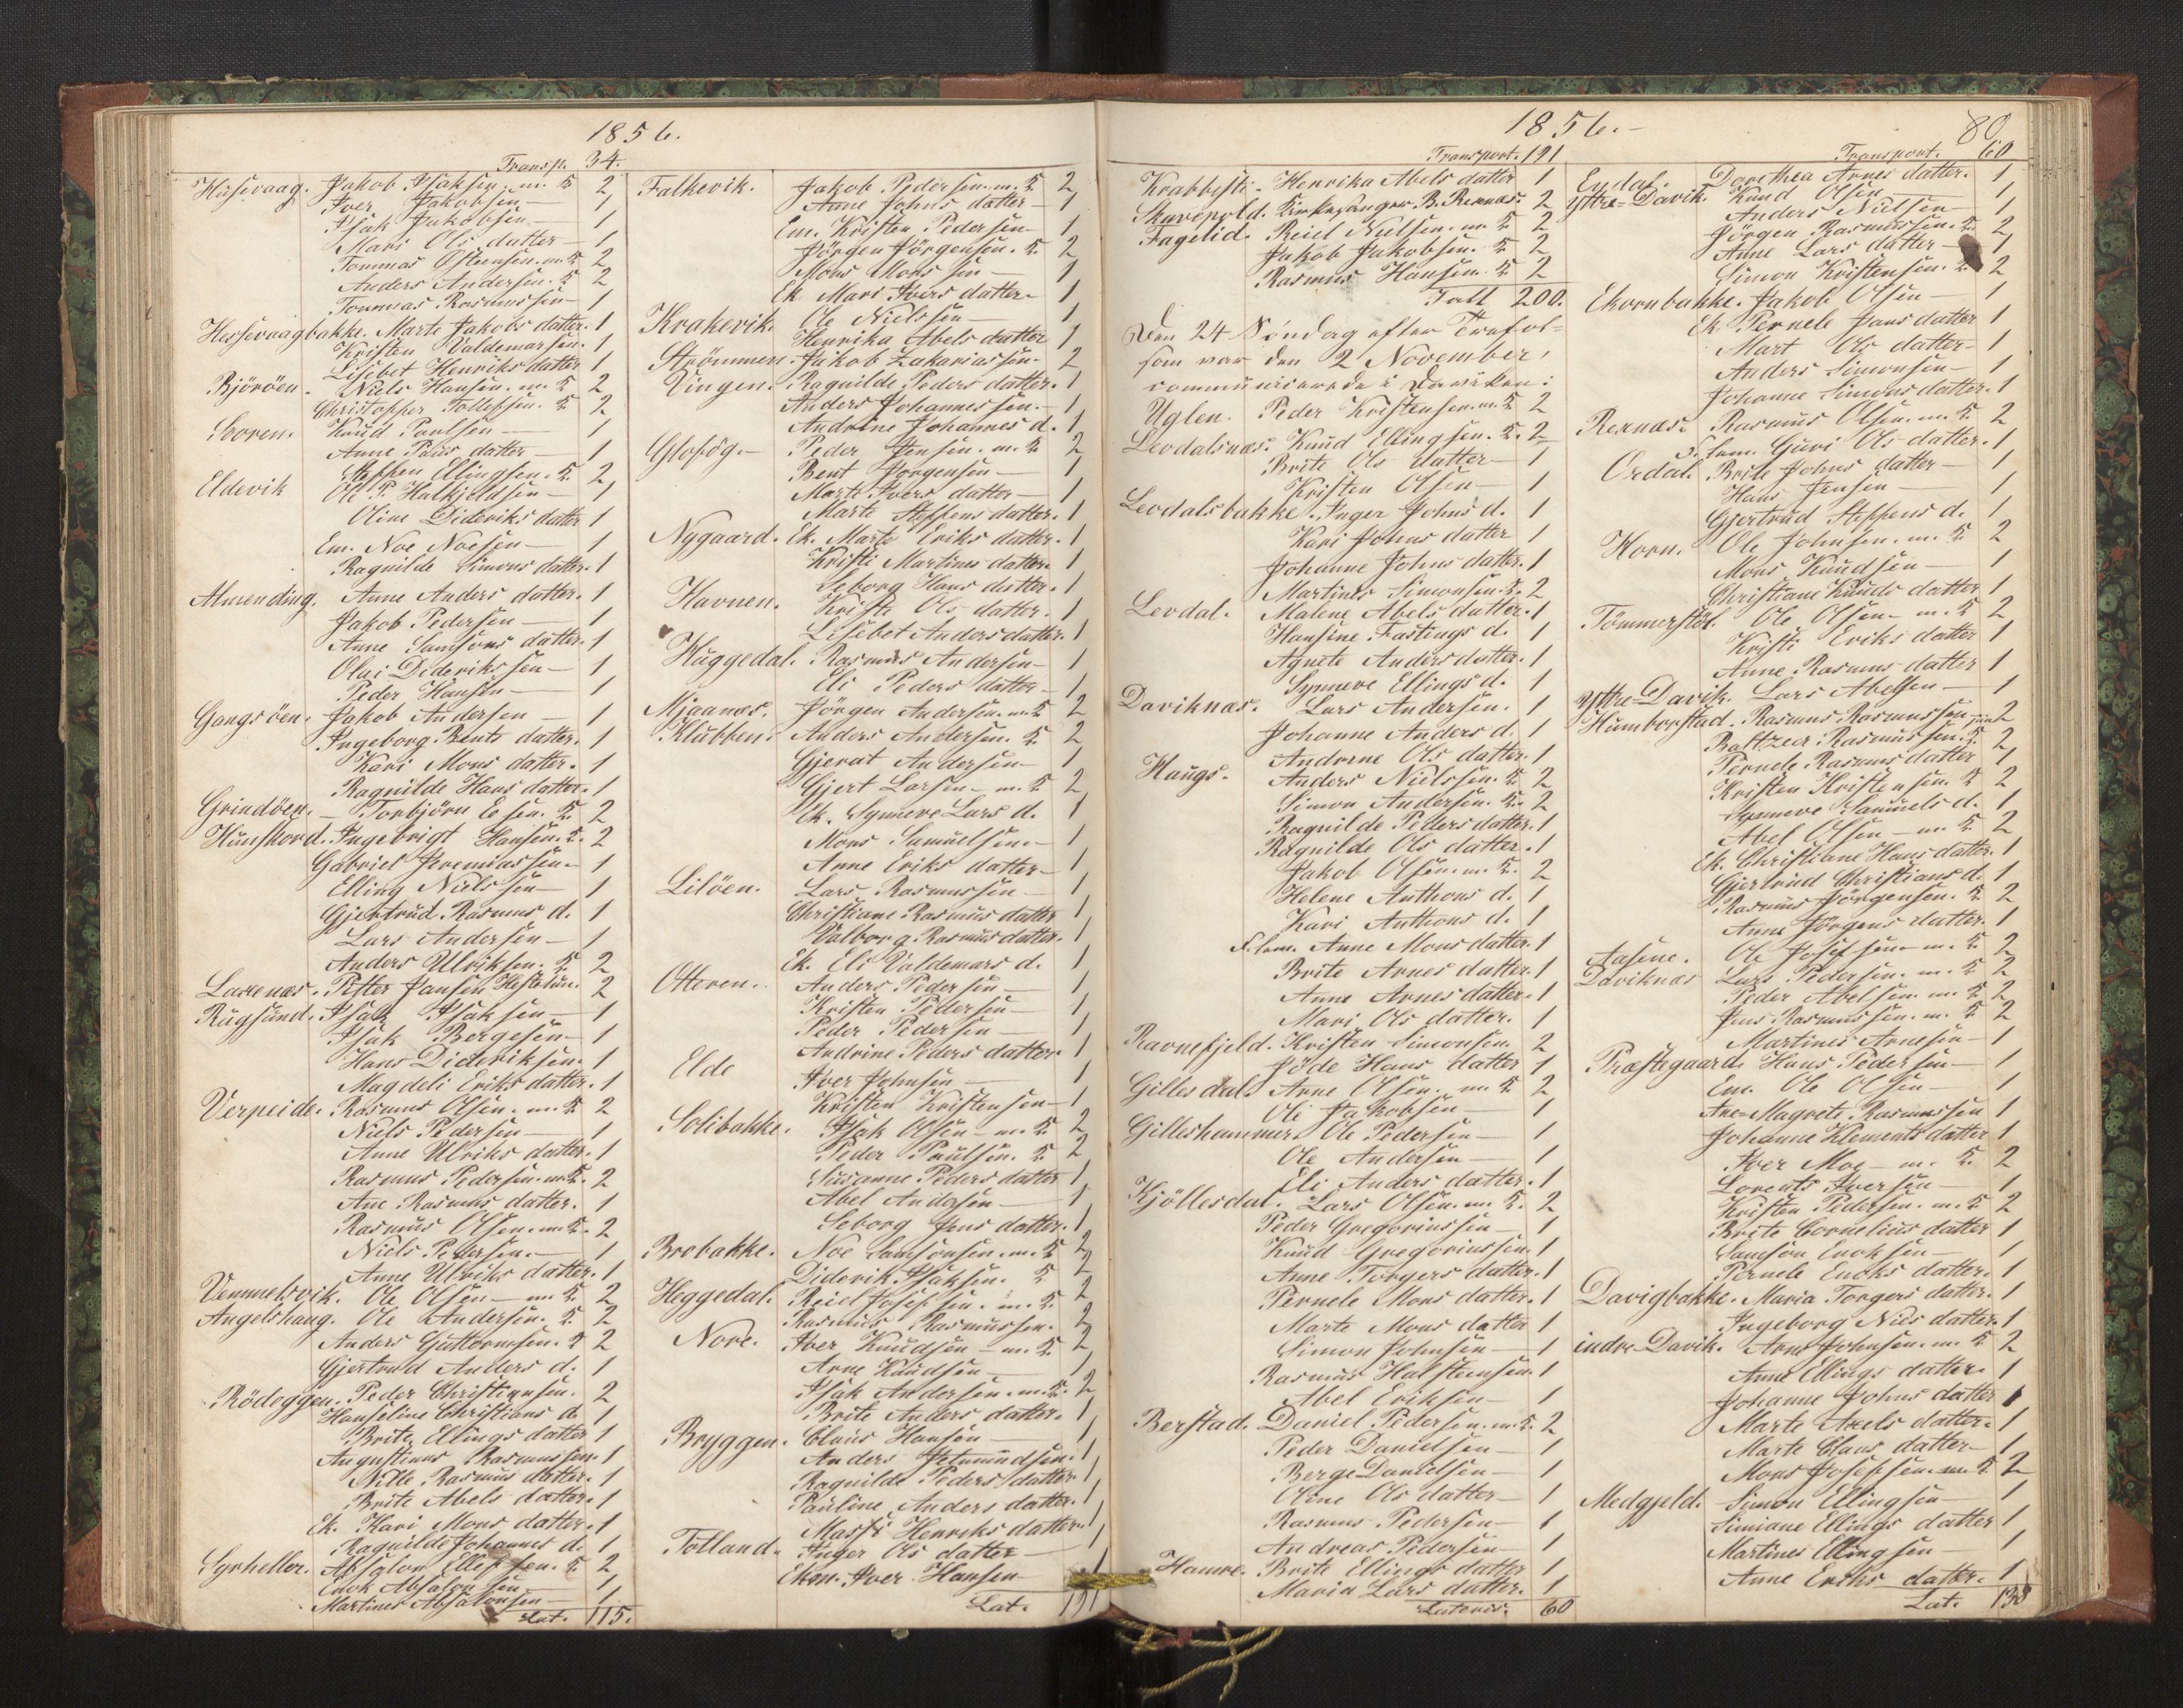 1856.
Transp. 34.
Husevaag. Jakob Isaksen. m. K. 2
Iver Jakobsen — 1
Isak Jakobsen — 1
Mari Ols datter — 1
Tommas Osteensen. m. K. 2
Anders Andersen. K. 2
Tommas Rasmussen — 1
Hessevaagbakke. Marte Jakobs datter. 1
Kristen Valdemarsen. 1
Lisebet Henriks datter 1
Björöen. Niels Hansen. m. K. 2
Christopher Tollefsen. K. 2
Sooren. Knud Poulsen — 1
Anne Pauls datter — 1
Steffen Ellingsen. K. 2
Eldevik Ole P. Halkjeldsen — 1
Oline Dideriks datter 1
Em. Noe Noesen — 1
Ragnilde Simons datter. 1
Almending. Anne Anders datter. 1
Jakob Pedersen — 1
Anne Samsons datter. 1
Olai Dideriksen — 1
Peder Hansen — 1
Gangsöen. Jakob Andersen — 1
Ingeborg Bents datter. 1
Kari Mons datter. 1
Ragnilde Hans datter. 1
Grindöen. Torbjörn Eesen. K. 2
Hunskord. Ingebrigt Hansen. K. 2
Gabriel Jeremiassen — 1
Elling Nielssen — 1
Gjertrud Rasmus d. 1
Lars Andersen — 1
Anders Ulriksen. K. 2
Laxenæs. Peter Jansen 2
Rugsund. Isak Isaksen — 1
Isak Bergesen — 1
Hans Dideriksen. 1
Magdeli Eriks datter. 1
Verpeide. Rasmus Olsen. m. K. 2
Niels Pedersen — 1
Anne Ulriks datter. 1
Rasmus Pedersen. m. K. 2
Ane Rasmus datter. 1
Rasmus Olsen. m. K. 2
Niels Pedersen. — 1
Anne Ulriks datter. 1
Vemmelsvik. Ole Olsen — m. K. 2
Angelshaug. Ole Andersen. K. 2
Anders Guttormsen. K 2
Gjertrud Anders d. 1
Rödeggen. Peder Christiansen. 2
Hanseline Christians d. 1
Brite Ellings datter 1
Augustinus Rasmussen. 1
Nille Rasmus datter. 1
Brite Abels datter. 1
Ek. Kari Mons datter. 1
Ragnilde Johannes d. 1
Syrheller. Absalon Ellefsen. K. 2
Enok Absalonsen — 1
Martines Absalonsen — 1
Lat. 115.
Falkevik. Jakob Pedersen. m. K. 2
Anne Johns datter — 1
Em. Kristen Pedersen — 1
Jörgen Jörgensen. K. 2
Mons Monssen — 1
Ek. Mari Ivers datter. 1
Krakevik. Ole Nielssen — 1
Henrika Abels datter 1
Strömmen. Jakob Zakariassen. 2
Vingen. Ragnilde Peders datter. 1
Anders Johannessen. — 1
Andrine Johannes d. 1
Glosög. — Peder Jensen. m. K 2
Bent Jörgensen — 1
Marte Ivers datter — 1
Marte Steffens datter. 1
Nygaard. Ek. Marte Eriks datter. 1
Kristi Martines datter. 1
Seborg Hans datter. 1
Havnen. Kristi Ols datter. 1
Lisebet Anders datter. 1
Huggedal. Rasmus Andersen — 1
Eli Peders datter — 1
Mjaanæs. Jörgen Andersen. m. K. 2
Klubben. Anders Andersen. K. 2
Gjerat Andersen 1
Gjert Larsen — m. K 2
Ek. Synneve Lars d. 1
Mons Samuelsen. 1
Anne Eriks datter — 1
Lilöen. Lars Rasmussen — 1
Christiane Rasmus datter 1
Valborg Rasmus datter. 1
Ek. Eli Valdemars d. 1
Otteren. Anders Pedersen — 1
Kristen Pedersen — 1
Peder Pedersen — 1
Andrine Peders datter. 1
Elde Iver Johnsen — 1
Kristen Kristensen — 1
Solibakke. Isak Olsen — m. K. 2
Peder Paulsen. K. 2
Susanne Peders datter 1
Abel Andersen — 1
Seborg Jens datter. 1
Brobakke. Noe Samsonsen. m. K. 2
Diderik Isaksen. K 2
Heggedal. Reiel Josefsen. m. K. 2
Rasmus Rasmussen. 2
Nore. Iver Knudsen — m. K. 2
Arne Knudsen — 1
Isak Andersen. m. K. 2
Brite Anders datter. 1
Bryggen. Claus Hansen — 1
Anders Jetmundsen. 1
Ragnilde Peders datter. 1
Pauline Anders datter. 1
Massi Henriks datter. 1
Tolland. Inger Ols datter — 1
Ekm. Iver Hansen 1
Lat. 191
1856. —
80
Transport. 191
Krabbesti. Henrika Abels datter 1
Skarepold. Kirkesanger B. Rernæs. 2
Fagelid. Reiel Nielsen. m. K 2
Jakob Jakobsen. K. 2
Rasmus Hansen. K 2
Tall 200.
Den 24 Söndag efter Trefol-
som var den 2 November,
communiserede i Daviken:
Uglen. Peder Kristensen. m. K 2
Levdalsnæs. Knud Ellingsen. K. 2
Brite Ols datter — 1
Kristen Olsen — 1
Levdalsbakke. Inger Johns d. 1
Kari Johns datter 1
Johanne Johns datter. 1
Martines Simonsen. K. 2
Levdal. Malene Abels datter. 1
Hansine Fastings d. 1
Agnete Anders datter. 1
Synneve Ellings d. 1
Daviknæs. Lars Andersen. 1
Johanne Anders d. 1
Andrine Ols datter. 1
Haugs. Anders Nielssen. K. 2
Simon Andersen. K. 2
Ragnilde Peders datter. 1
Ragnilde Ols datter. 1
Jakob Olsen. m. K. 2
Helene Anthons d. 1
Kari Anthons d. 1
F. lem. Anne Mons datter. 1
Brite Arnes datter. 1
Anna Arnes datter. 1
Mari Ols datter. 1
Ravnefjeld. Kristen Simonsen. 2
Jöde Hans datter 1
Gillesdal. Arne Olsen. m. K 2
Oli Jakobsen — 1
Gilleshammer. Ole Pedersen — 1
Ole Andersen — 1
Eli Anders datter. 1
Kjöllesdal. Lars Olsen. m. K. 2
Peder Gregoriussen — 1
Knud Gregoriussen. 1
Anne Torgers datter. 1
Pernele Mons datter. 1
Marte Mons datter 1
Simon Johnsen — 1
Rasmus Halsteensen. 1
Abel Eriksen — 1
Berstad. Daniel Pedersen. m. K. 2
Peder Danielsen — 1
Berge Danielsen — 1
Oline Ols datter — 1
Rasmus Pedersen — 1
Andreas Pedersen — 1
Hamre. Brite Ellings datter 1
Maria Lars datter. 1
Lateris. 60
Transport. 60
Endal. Dorothea Arnes datter. 1
Yttre-Davik. Knud Olsen 1
Anders Nielsen — 1
Jörgen Rasmussen. K. 2
Anne Lars datter — 1
Simon Kristensen. K. 2
Ekornbakke. Jakob Olsen — 1
Ek. Pernele Jans datter 1
Mart Ols datter — 1
Anders Simonsen — 1
Johanne Simons datter. 1
Rernæs. Rasmus Olsen. m. K. 2
F. lem. Guri Ols datter. 1
Ordal. Brite Johns datter — 1
Hans Jensen — 1
Gjertrud Steffens d. 1
Horn. Ole Johnsen. m. K. 2
Mons Knudsen — 1
Christiane Knuds datter 1
Tömmerstöl. Ole Olsen — m. K 2
Kristi Eriks datter 1
Anne Rasmus datter 1
Yttre-Davik. Lars Abelsen — 1
Humborstad. Rasmus Rasmussen 2
Baltzer Rasmussen. K. 2
Pernele Rasmus datter 1
Kristen Kristensen. K 2
Synneve Samuels d. 1
Abel Olsen — m. K. 2
Ek. Christiane Hans datter. 1
Gjertrud Christians d. 1
Rasmus Jörgensen. K. 2
Anne Jörgens datter. 1
Aasene. Ole Josefsen — m. K. 2
Daviknæs Lars Pedersen. m. K. 2
Peder Abelsen. m. K. 2
Jens Rasmussen. m. K. 2
Martines Arnesen — 1
Præstegaard. Hans Pedersen — 1
Em. Ole Olsen — 1
Ane-Magrete Rasmussen 1
Johanne Klements datter 1
Iver Moe — m. K. 2
Lorents Iversen — 1
Kristen Pedersen. m. K 2
Brite Cornelius datter 1
Samson Enoksen — 1
Pernele Enoks datter. 1
Davigbakke. Maria Torgers datter. 1
Ingeborg Niels datter. 1
indre Davik. Arne Johnsen. m. K 2
Anne Ellings datter. 1
Johanne Johns datter 1
Marte Axels datter. 1
Marte Claus datter — 1
Mons Josefsen. m. K. 2
Medgjeld. Simon Ellingsen — 1
Simiane Ellings datter 1
Martines Ellingsen — 1
Anne Eriks datter. 1
Lat. 138